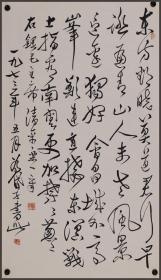 东方欲晓莫道君行早
踏遍青山人未老风景
这边独好会昌城外高
峰颠连直接东溟战
士指看南粤更加郁郁葱葱
右录毛主席清平乐一首
一九七三年五月